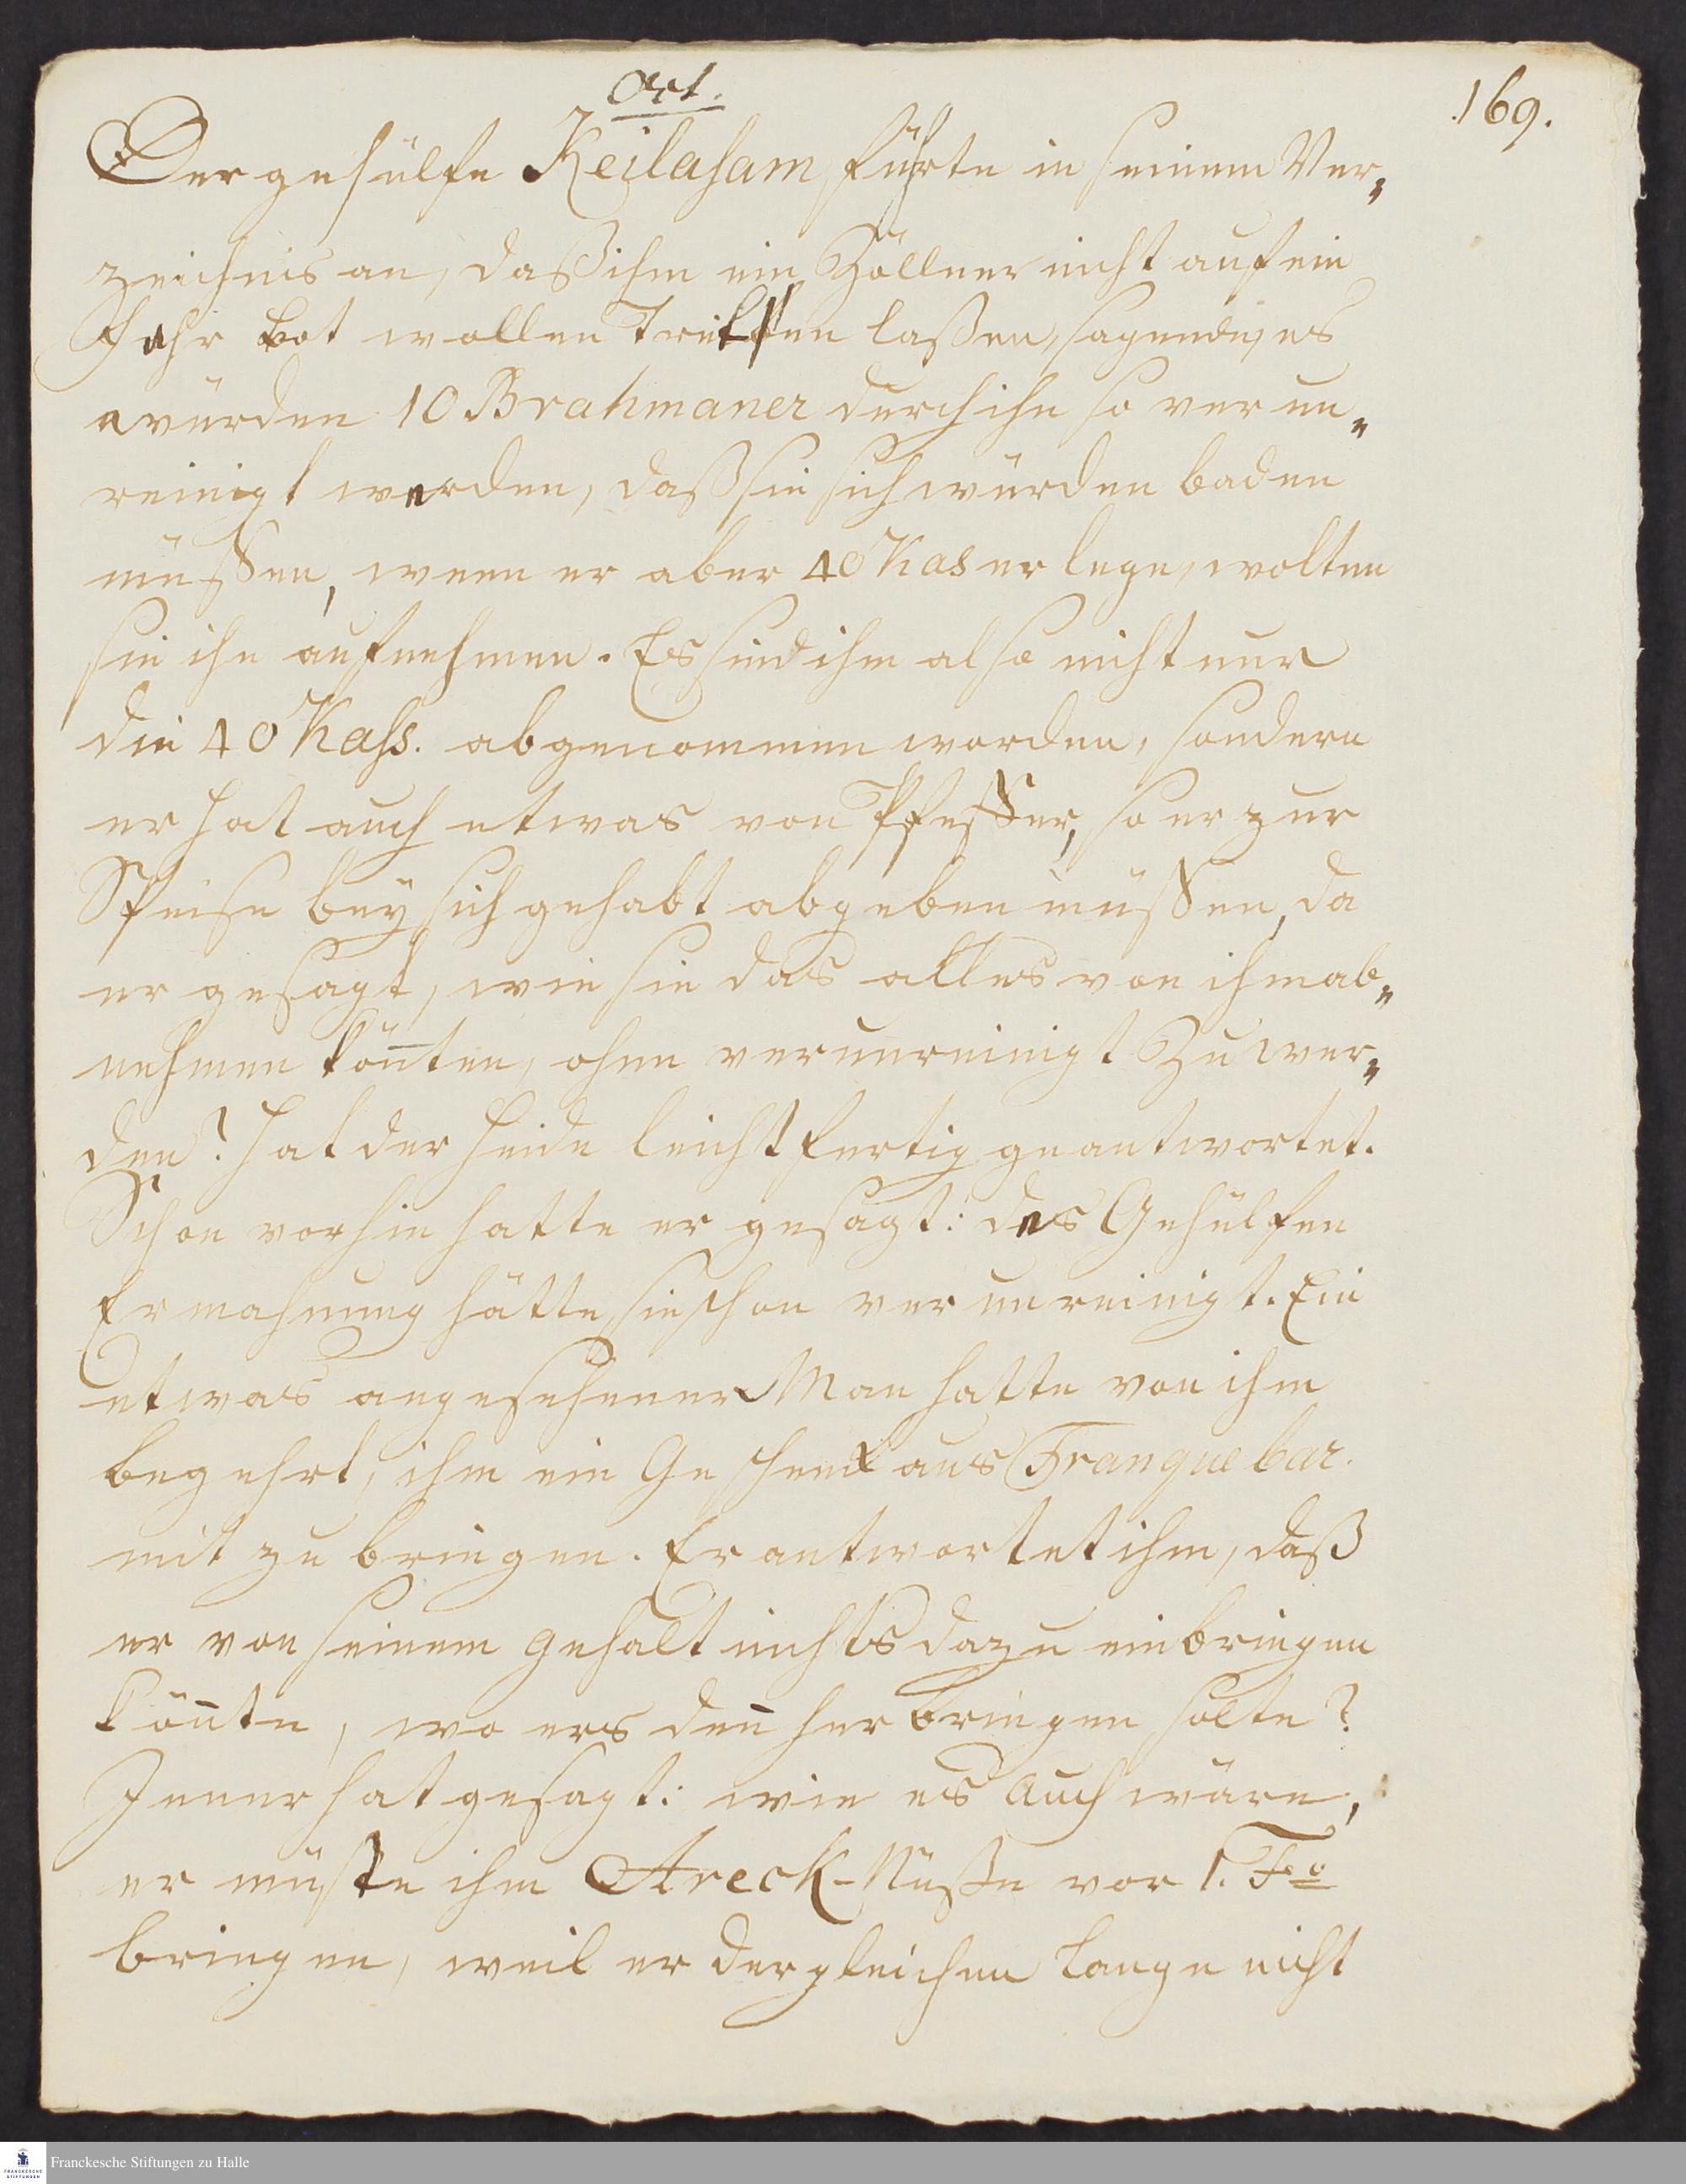 Oct.
169.
Der gehülfe Keilasam führte in seinem Ver„
zeichnis an, daß ihm ein Zöllner nicht auf ein
Fahr bot wollen tretten laßen, sagende, es
würden 10 Brahmaner durch ihn so verun„
reinigt werden, daß sie sich würden baden
müßen, wenn er aber 40 Kas erlege, wolten
sie ihn aufnehmen. Es sind ihm also nicht nur
die 40 Kass. abgenommen worden, sondern
er hat auch etwas von Pfeffer, so er zur
Speise bey sich gehabt abgeben müßen, da
er gesagt, wie sie das alles von ihm ab„
nehmen könten, ohne verunreinigt Zu wer„
den? hat der Heide leichtfertig geantwortet.
Schon vorhin hatte er gesagt: des Gehülfen
Ermahnung hätte sie schon verunreinigt. Ein
etwas angesehener Man hatte von ihm
begehrt, ihm ein Geschenk aus Tranquebar.
mit zu bringen. Er antwortet ihm, daß
er von seinem gehalt nichts dazu einbringen
könte, wo ers den her bringen solte?
Jener hat gesagt: wie es auch wäre,
er müste ihm Areck-Nüße vor 1. Fo
bringen, weil er dergleichen lange nicht
Franckesche Stiftungen zu Halle